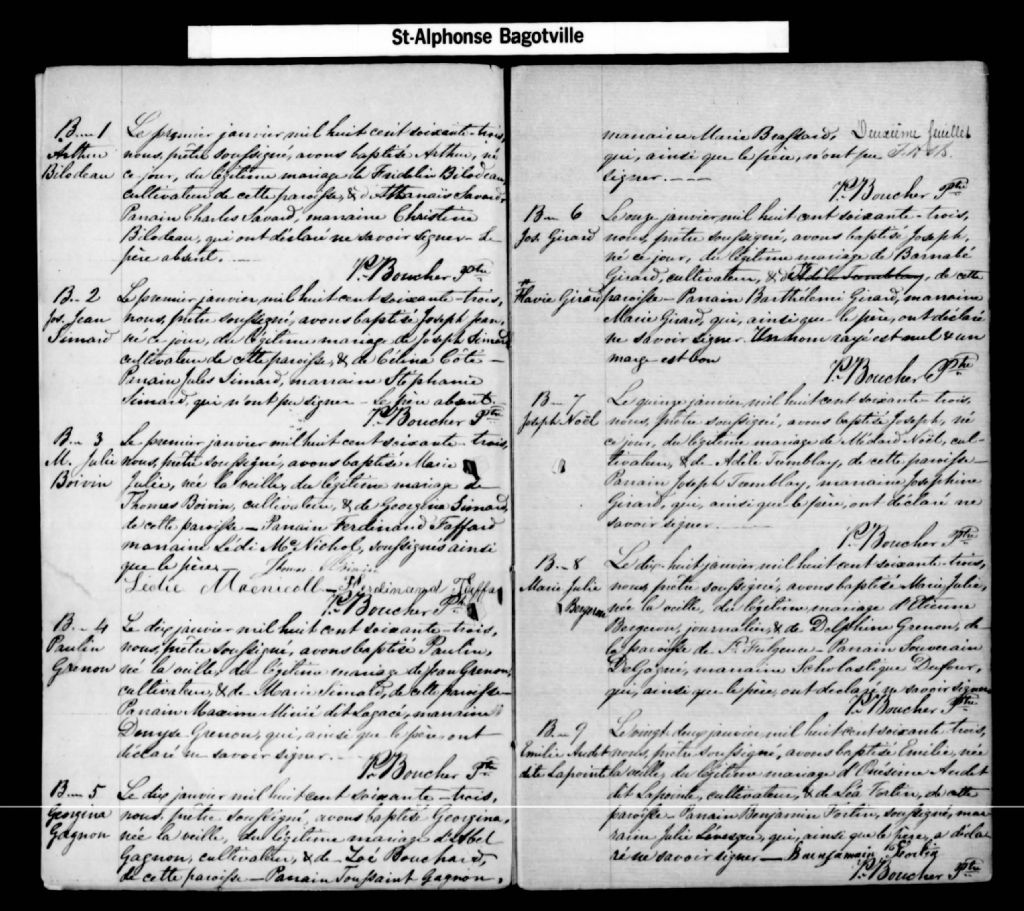 St-Alphonse Bagotville
B—1
Arthur
Bilodeau
Le premier janvier mil huit cent soixante-trois,
nous, prêtre soussigné, avons baptisé Arthur, né
ce jour, du légitime mariage de Fridolin Bilodeau,
cultivateur de cette paroisse, & d'Athanaïs Savard.
Parrain Charles Savard, marraine Christine
Bilodeau, qui ont déclaré ne savoir signer. Le
père absent.
Ps. Boucher Ptre
B—2
Jos. Jean
Simard
Le premier janvier mil huit cent soixante-trois,
nous, prêtre soussigné, avons baptisé Joseph Jean,
né ce jour, du légitime mariage de Joseph Simard
cultivateur de cette paroisse, & de Célina Côté—
Parrain Jules Simard, marraine Stéphanie
Simard, qui n'ont pu signer — Le père absent.
Ps. Boucher Ptre
B—3
M. Julie
Boivin
Le premier janvier mil huit cent soixante-trois,
nous, prêtre soussigné, avons baptisé Marie
Julie, née la veille, du légitime mariage de
Thomas Boivin, cultivateur, & de Georgina Simard,
de cette paroisse — Parrain Ferdinand Taffard
marraine Lédi McNichol, soussignés ainsi
que le père.
Thomas Boivin
Lédie Macnicoll — Ferdinand
Ps. Boucher Ptre
B—4
Paulin
Grenon
Le dix janvier mil huit cent soixante-trois,
nous, prêtre soussigné, avons baptisé Paulin,
né la veille, du légitime mariage de Jean Grenon,
cultivateur, & de Marie Simard, de cette paroisse—
Parrain Maxime Mivié dit Lagacé, marraine
Denyse Grenon, qui, ainsi que le père, ont
déclaré ne savoir signer.
Ps. Boucher Ptre
B—5
Georgina
Gagnon
Le dix janvier mil huit cent soixante-trois,
nous, prêtre soussigné, avons baptisé Georgina,
née la veille, du légitime mariage d'Abel
Gagnon, cultivateur, & de Zoé Bouchard,
de cette paroisse — Parrain Toussaint Gagnon,
marraine Marie Brassard,
Deuxième feuillet
qui, ainsi que le père, n'ont pu
signer.
Ps. Boucher Ptre
B—6
Jos. Girard
Le onze janvier mil huit cent soixante-trois,
nous, prêtre soussigné, avons baptisé Joseph,
né ce jour, du légitime mariage de Barnabé
Girard, cultivateur, & d'Adèle Tremblay, de cette
+
Flavie Girard
paroisse — Parrain Barthélemi Girard, marraine
Marie Girard, qui, ainsi que le père, ont déclaré
ne savoir signer. Un nom rayé est nul & un
marge est bon
Ps. Boucher Ptre
B—7
Joseph Noël
Le quinze janvier mil huit cent soixante-trois,
nous, prêtre soussigné, avons baptisé Joseph, né
ce jour, du légitime mariage de Médard Noël, cul-
tivateur, & de Adèle Tremblay, de cette paroisse—
Parrain Joseph Tremblay, marraine Joséphine
Girard, qui, ainsi que le père, ont déclaré ne
savoir signer.
Ps. Boucher Ptre
B—8
Marie Julie
Bergeron
Le dix-huit janvier mil huit cent soixante-trois,
nous, prêtre soussigné, avons baptisé Marie Julie,
née la veille, du légitime mariage d'Etienne
Bergeron, journalier, & de Delphine Grenon, de
la paroisse de St. Fulgence — Parrain Souverain
DeGagné, marraine Scholastique Dufour,
qui, ainsi que le père, ont déclaré ne savoir signer
Ps. Boucher Ptre
B—9
Emilie Audet
dite Lapointe
Le vingt deux janvier mil huit cent soixante-trois,
nous, prêtre soussigné, avons baptisé Emilie, née
la veille, du légitime mariage d'Onésime Audet
dit Lapointe, cultivateur, & de Léa Fortin, de cette
paroisse — Parrain Benjamin Fortin, soussigné, mar-
raine Julie Lévesque, qui, ainsi que le père, a décla-
ré ne savoir signer —
Ps. Boucher Ptre